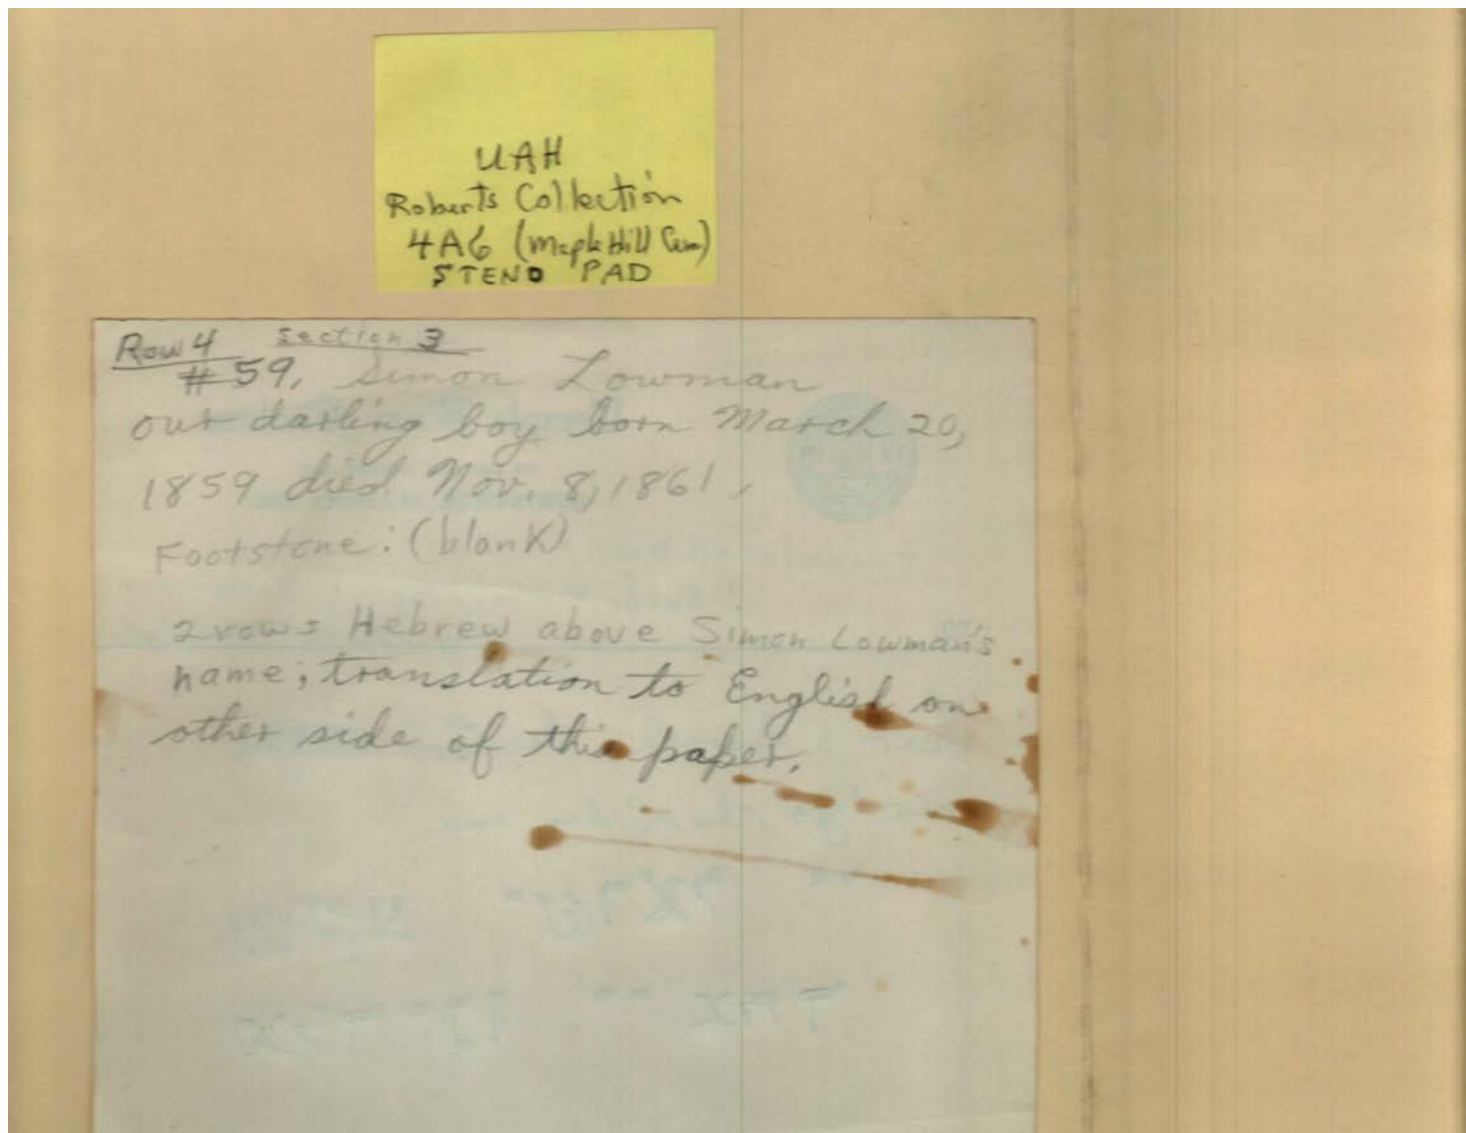 UAH
Roberts Collection
4A6 (Maple Hill Cem)
STENO PAD
Row 4 Section 3
#59, Simon Lowman
our darling boy born March 20,
1859 died Nov. 8, 1861,
Footstone: (blank)
2 rows Hebrew above Simon Lowman's
name; translation to English on
other side of this paper.